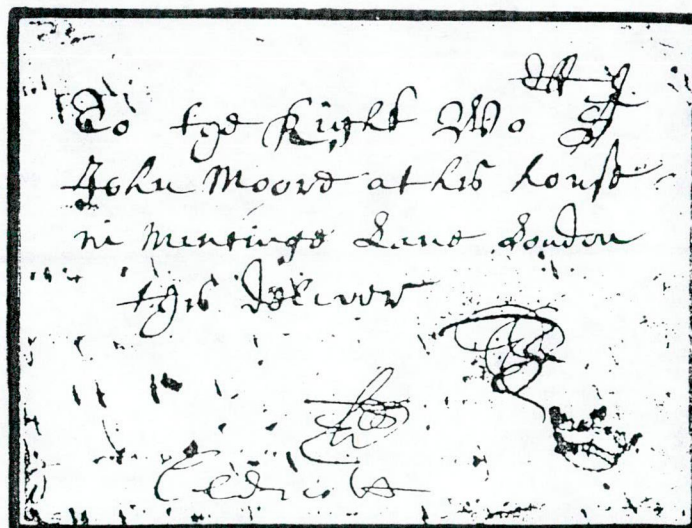 To the Right Wo Sr
John Moore at his house
in Mincinge Lane London
this deliver